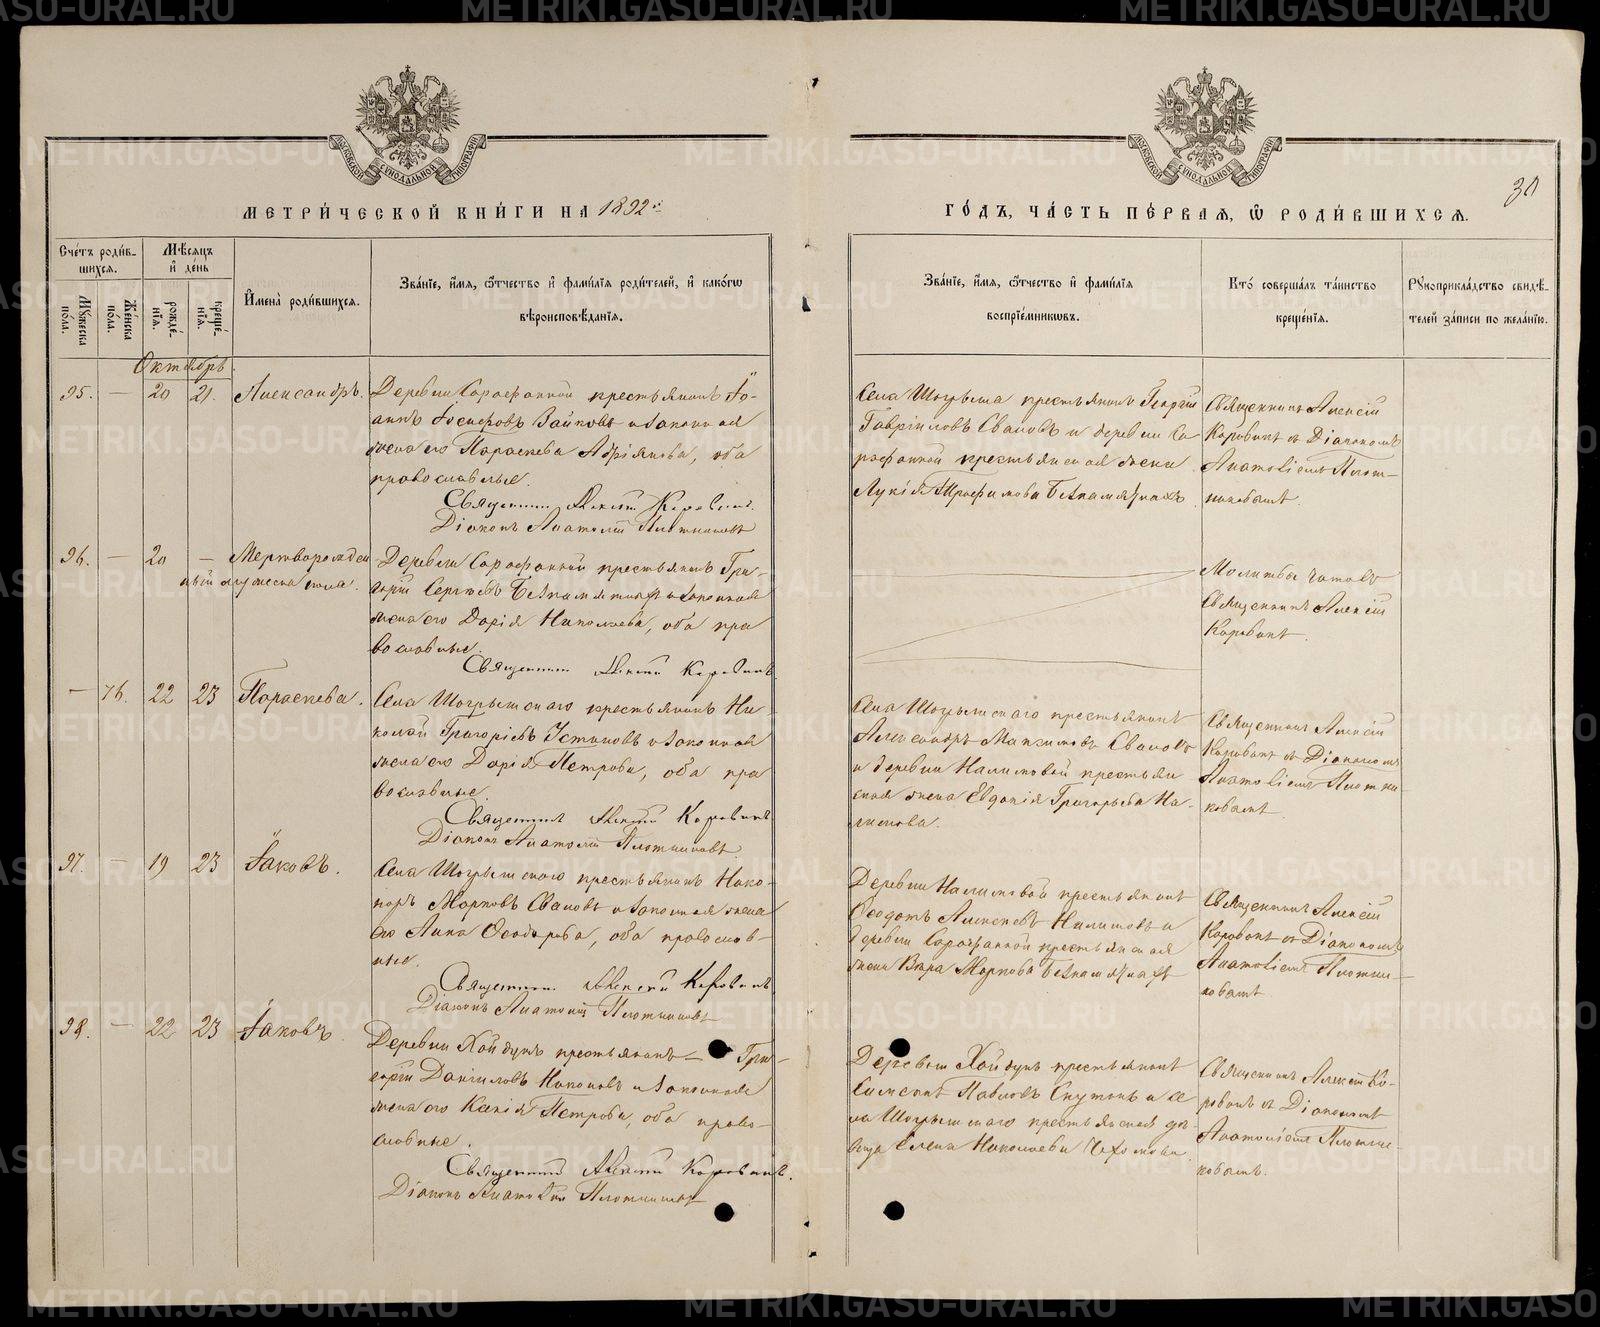 МЕТРИ́ЧЕСКОЙ КНИ́ГИ НА 1892й
ГО́ДЪ, ЧА́СТЬ ПЕ́РВАЯ, Ѿ РОДИ́ВШИХСЯ.
30
Сче́тъ роди́в-
шихся.
Мѣ́сяцъ
и҆ де́нь
Мꙋ́жеска
по́ла.
Же́нска
по́ла.
рожде́-
нїя.
креще́-
нїя.
И҆мена̀ роди́вшихся.
Зва́нїе, и҆́мя, ѻ҆́тчество и҆ фами́лїя роди́телей, и҆ како́гѡ
вѣроисповѣ́данїя.
Зва́нїе, и҆́мя, ѻ҆́тчество и҆ фами́лїя
воспрїе́мникѡвъ.
Кто̀ соверша́лъ та́инство
креще́нїя.
Рꙋкоприкла́дство свидѣ́-
телей за́писи по жела́нїю.
Октябрь
95. — 20 21. Александръ.
Деревни Сарафанной крестьянинъ Іо-
аннъ Іосифовъ Зайковъ и законная
жена его Параскева Адріянова, оба
православные.
Священникъ Алексій Коровинъ.
Діаконъ Анатолій Плотниковъ
Села Шогрыша крестьянинъ Георгій
Гавріиловъ Сваловъ и деревни Са
рафанной крестьянская жена
Лукія Трофимова Безпамятныхъ.
Священникъ Алексій
Коровинъ съ Діакономъ
Анатоліемъ Плот-
никовымъ.
96. — 20 — Мертворожден
ный мужеска пола.
Деревни Сарафанной крестьянинъ Гри-
горій Сергѣевъ Безпамятныхъ и законная
жена его Дарія Николаева, оба пра
вославные.
Священникъ Алексій Коровинъ
Молитвы читалъ
Священникъ Алексій
Коровинъ.
— 76. 22 23 Параскева.
Села Шогрышскаго крестьянинъ Ни-
колай Григоріевъ Устиновъ и законная
жена его Дарія Петрова, оба пра
вославные.
Священникъ Алексій Коровинъ
Діаконъ Анатолій Плотниковъ
Села Шогрышскаго крестьянинъ
Александръ Максимовъ Сваловъ
и деревни Налимовой крестьян
ская жена Евдокія Григорьева На-
лимова.
Священникъ Алексій
Коровинъ съ Діакономъ
Анатоліемъ Плотни-
ковымъ.
97. — 19 23 Іаковъ.
Села Шогрышскаго крестьянинъ Ника-
норъ Марковъ Сваловъ и законная жена
его Анна Ѳеодорова, оба православ-
ные.
Священникъ Алексій Коровинъ
Діаконъ Анатолій Плотниковъ
Деревни Налимовой крестьянинъ
Ѳеодотъ Алексѣевъ Налимовъ и
деревни Сарафанной крестьянская
жена Вѣра Маркова Безпамятныхъ
Священникъ Алексій
Коровинъ съ Діакономъ
Анатоліемъ Плотни-
ковымъ
98. — 22 23 Іаковъ.
Деревни Хайдукъ крестьянинъ — Гри-
горій Даніиловъ Никоновъ и законная
жена его Ксенія Петрова, оба право-
славные.
Священникъ Алексій Коровинъ.
Діаконъ Анатолій Плотниковъ
Деревни Хайдукъ крестьянинъ
Симеонъ Павловъ Скутинъ и се
ла Шогрышскаго крестьянская дѣ-
вица Елена Николаева Чехомова.
Священникъ Алексій Ко-
ровинъ съ Діакономъ
Анатоліемъ Плотни-
ковымъ.